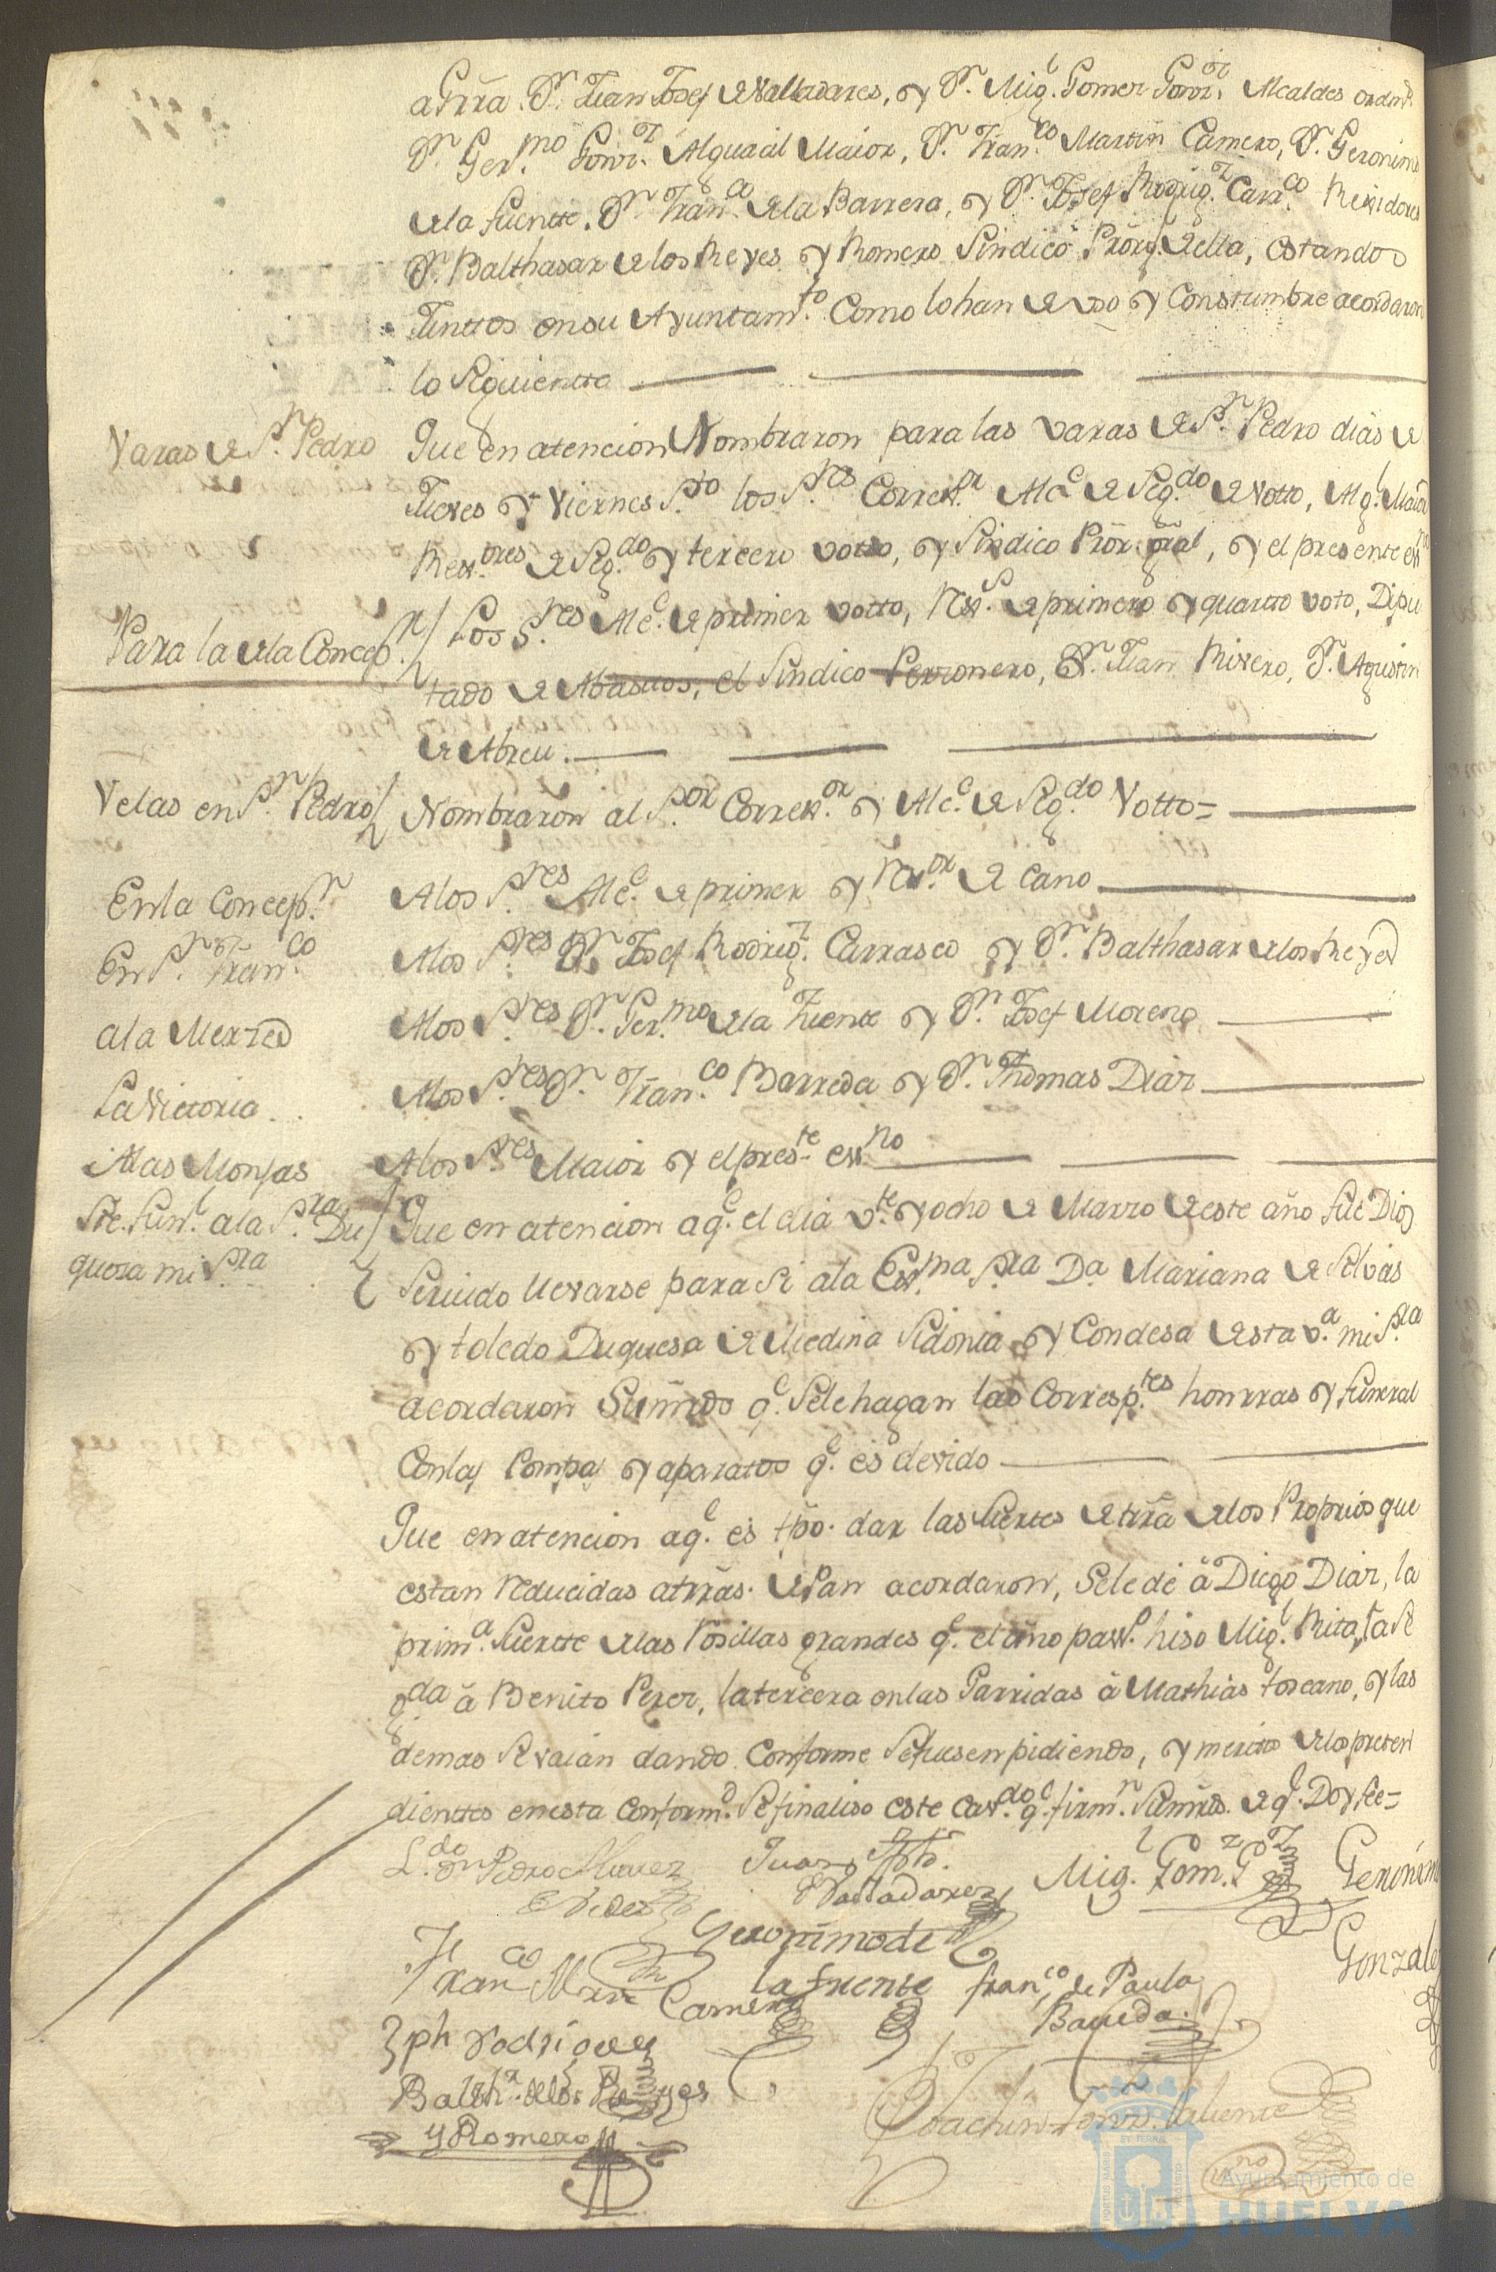 a Grra. Dn. Juan Josef de Valladares, y Dn. Migl. Gomez Gonz. Alcaldes ordins.
Dn. Germo. Gonz. Alguacil Maior, Dn. Franco. Martin Camero, Dn. Geronimo
de la fuente, Dn. Franco. de la Barrera, y Dn. Josef Rodrigz. Carrco. Rexidores
Dn. Balthasar de los Reyes y Romero Sindico Prōrl. de ella, estando
Junttos en su Ayuntamto. Como lo han de uso y Constumbre acordaron
lo Siguientte
Varas de Sn. Pedro
Que en atencion Nombraron para las varas de Sn. Pedro dias de
Jueves y Viernes Sto. los Sres. Correxor. Alce. de Segdo. de Votto, Algl. Maior
Rexores. de Segdo. y tercero votto, y Sindico Prōr. grāl, y el presente esno
Para la de la Concepn.
Los Sres. Alce. de primer votto, Rexs. de primero y quartto voto, Dipu
tado de Abasttos, el Sindico Perzonero, Dn. Juan Rivero, Dn. Agustin
de Abreu.
Velas en Sn. Pedro
Nombraron al Sor. Correxor. y Alce. de Segdo. Votto=
En la Concepn.
A los Sres. Alce. de primer y Rexor. de Cano
En Sn. Franco.
A los Sres. Dn. Josef Rodrigz. Carrasco y Dn. Balthasar de los Reyes
a la Merzed
A los Sres. Dn. Germo. de la Fuente y Dn. Josef Moreno
La Victoria
A los Sres. Dn. Franco. Barreda y Dn. Thomas Diaz
A las Monjas
A los Sres. Maior y el preste. esno
Sre. funl. a la Sra. Du
quesa mi Sra
Que en atencion a qe. el dia vte. y ocho de Marzo de este año fue Dios
Servido llevarse para Si a la Exma. Sra. Da. Mariana de Silvas
y toledo Duquesa de Medina Sidonia y Condesa de esta va. mi Sra
acordaron Sus mrds qe. Se le hagan las Corresptes. honrras y funeral
Con las Pompas y aparatos qe. es devido
Que en atencion a qe. es tpo. dar las Suertes de trrā de los Proprios que
estan reducidas a trrās. de Pan acordaron, Se le dé â Diego Diaz, la
prima. Suertte de las Posillas grandes qe. el año passo. hiso Migl. Rita, la Se
gda â Benito Perez, la tercera en las Parridas â Mathias toscano, y las
demas Se vaian dando Conforme Se fuesen pidiendo, y meritos de los preten
dienttes en esta Conformd. Se finaliso este Cavdo. qe. firmn. Sus mrds. de qe. Doy fee=
Ldo. dn Pedro Alvarez
Juan Jph.
de Valladarez
Mig. Gomz. Gz
Geronimo
Gonzalez
Franco Mrn Camero
Geronimo de
la fuente
franco. de Paula
Barreda
Jph rodriguez
Balthr. de los Reyes
y Romero
Joachin Gonz. Valiente
no
Ayuntamiento de
HUELVA